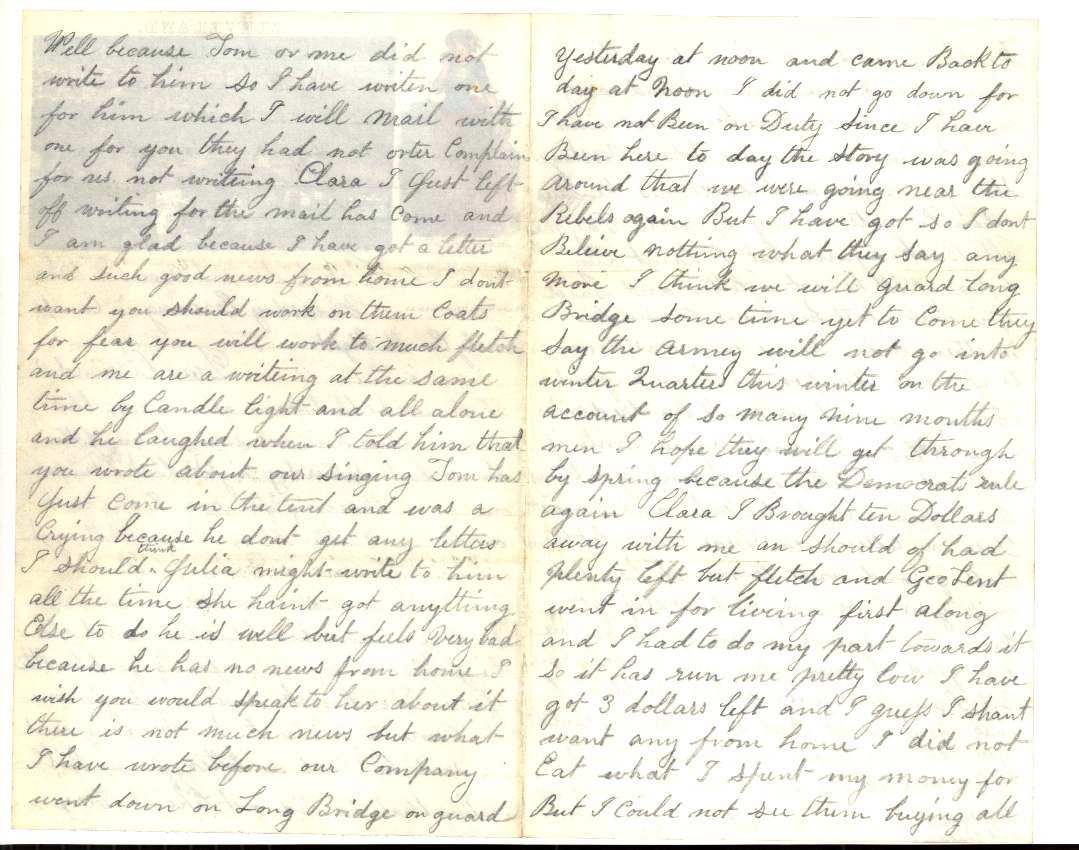 Well because Tom or me did not
write to him so I have writen one
for him which I will mail with
one for you they had not orter Complain
for us not writeing Clara I Just left
off writing for the mail has Come and
I am glad because I have got a letter
and such good news from home I dont
want you should work on them Coats
for fear you will work to much fletch
and me are a writeing at the same
time by Candle light and all alone
and he laughed when I told him that
you wrote about our singing Tom has
Just Come in the tent and was a
Crying because he dont get any letters
I should think Julia might write to him
all the time she haint got anything
Else to do he is well but feels very bad
because he has no news from home I
wish you would speak to her about it
there is not much news but what
I have wrote before our Company
went down on Long Bridge on guard
yesterday at noon and came Back to
day at Noon I did not go down for
I have not Been on Duty since I have
Been here to day the story was going
around that we were going near the
Rebels again But I have got so I dont
Believe nothing what they say any
more I think we will guard long
Bridge some time yet to Come they
say the armey will not go into
winter Quarters this winter on the
account of so many nine months
men I hope they will get through
by spring because the Democrats rule
again Clara I Brought ten Dollars
away with me an should of had
plenty left but fletch and Geo Lent
went in for liveing first along
and I had to do my part towards it
so it has run me pretty low I have
got 3 dollars left and I guess I shant
want any from home I did not
Eat what I spent my money for
But I Could not see them buying all